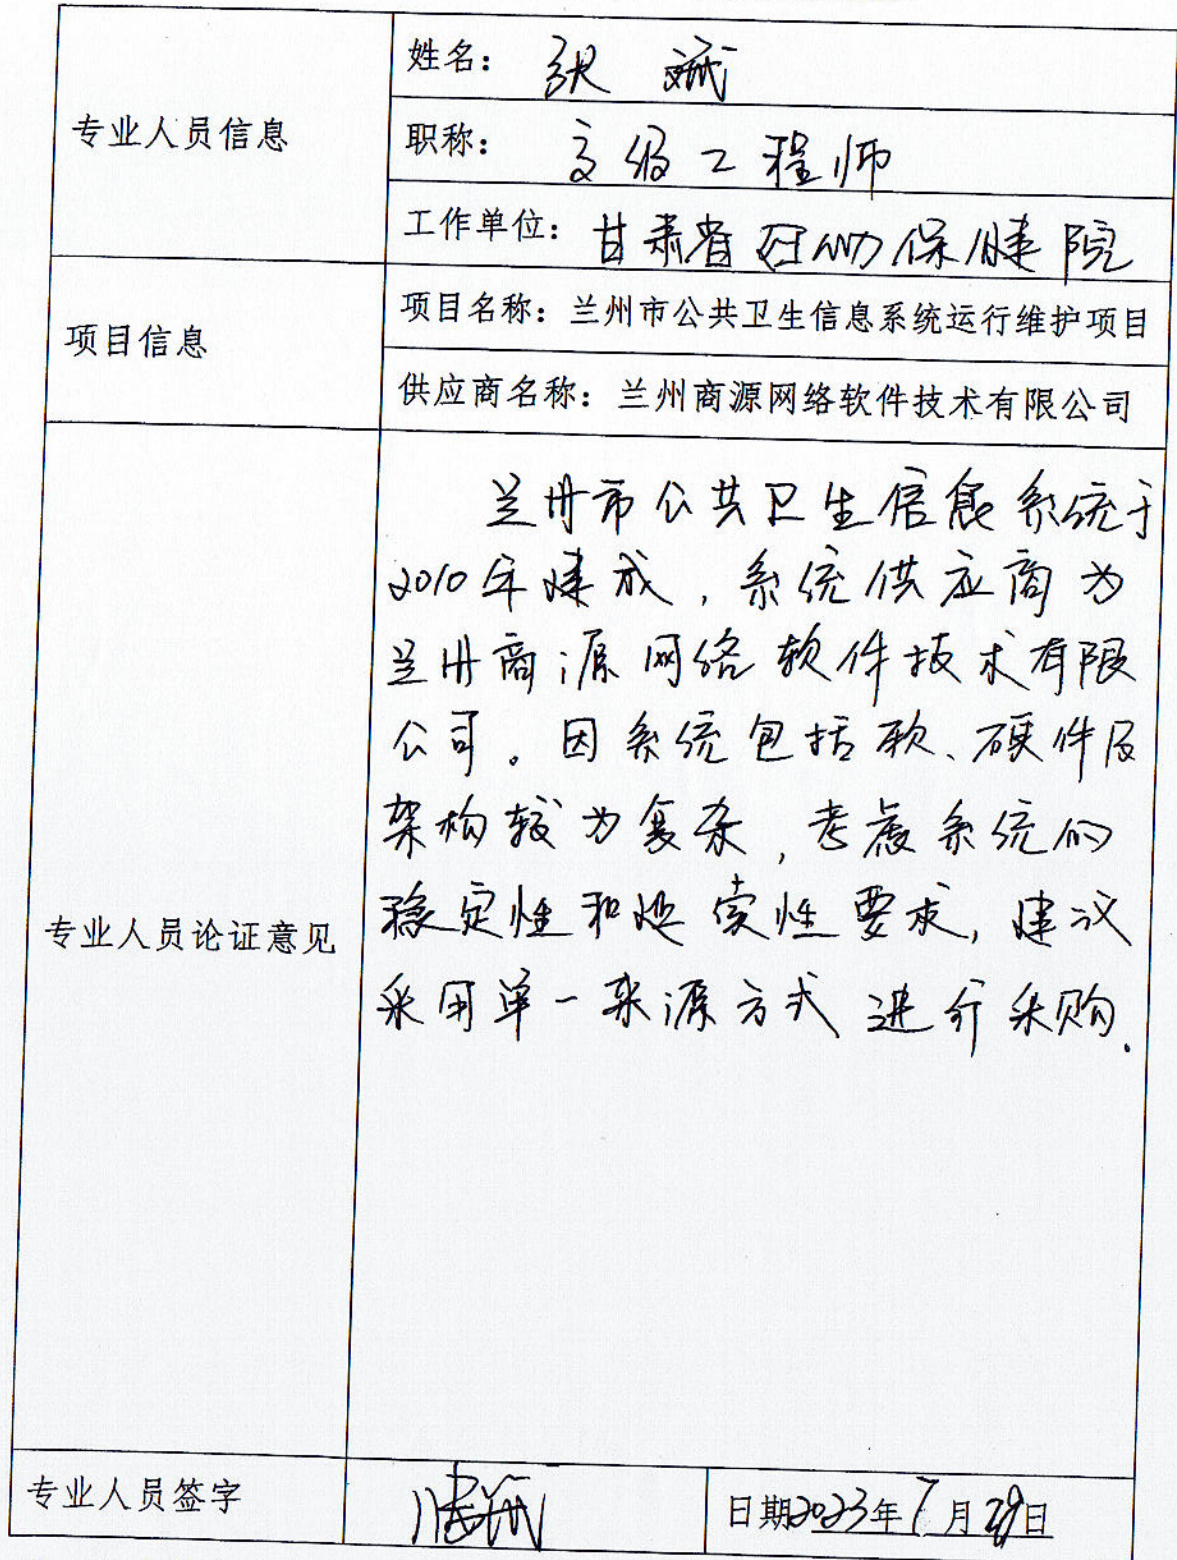 专业人员信息
姓名：张斌
职称：高级工程师
工作单位：甘肃省妇幼保健院
项目信息
项目名称：兰州市公共卫生信息系统运行维护项目
供应商名称：兰州商源网络软件技术有限公司
专业人员论证意见
兰州市公共卫生信息系统于
2010年建成，系统供应商为
兰州商源网络软件技术有限
公司。因系统包括软、硬件及
架构较为复杂，考虑系统的
稳定性和延续性要求，建议
采用单一来源方式进行采购.
专业人员签字
日期2023年7月29日